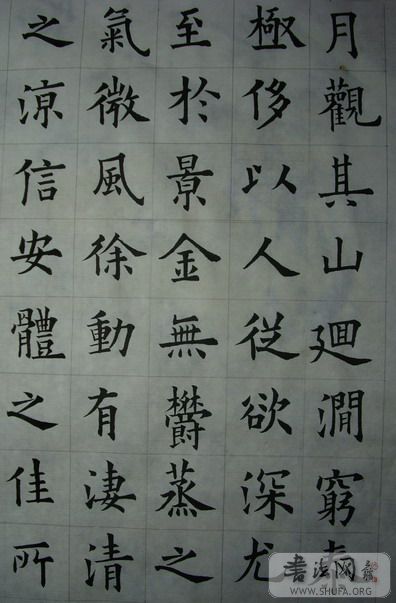 月觀其山廻澗窮泰
極侈以人從欲深尤
至於景金無欝蒸之
氣微風徐動有淒清
之涼信安體之佳所
書法网
WWW.SHUFA.ORG